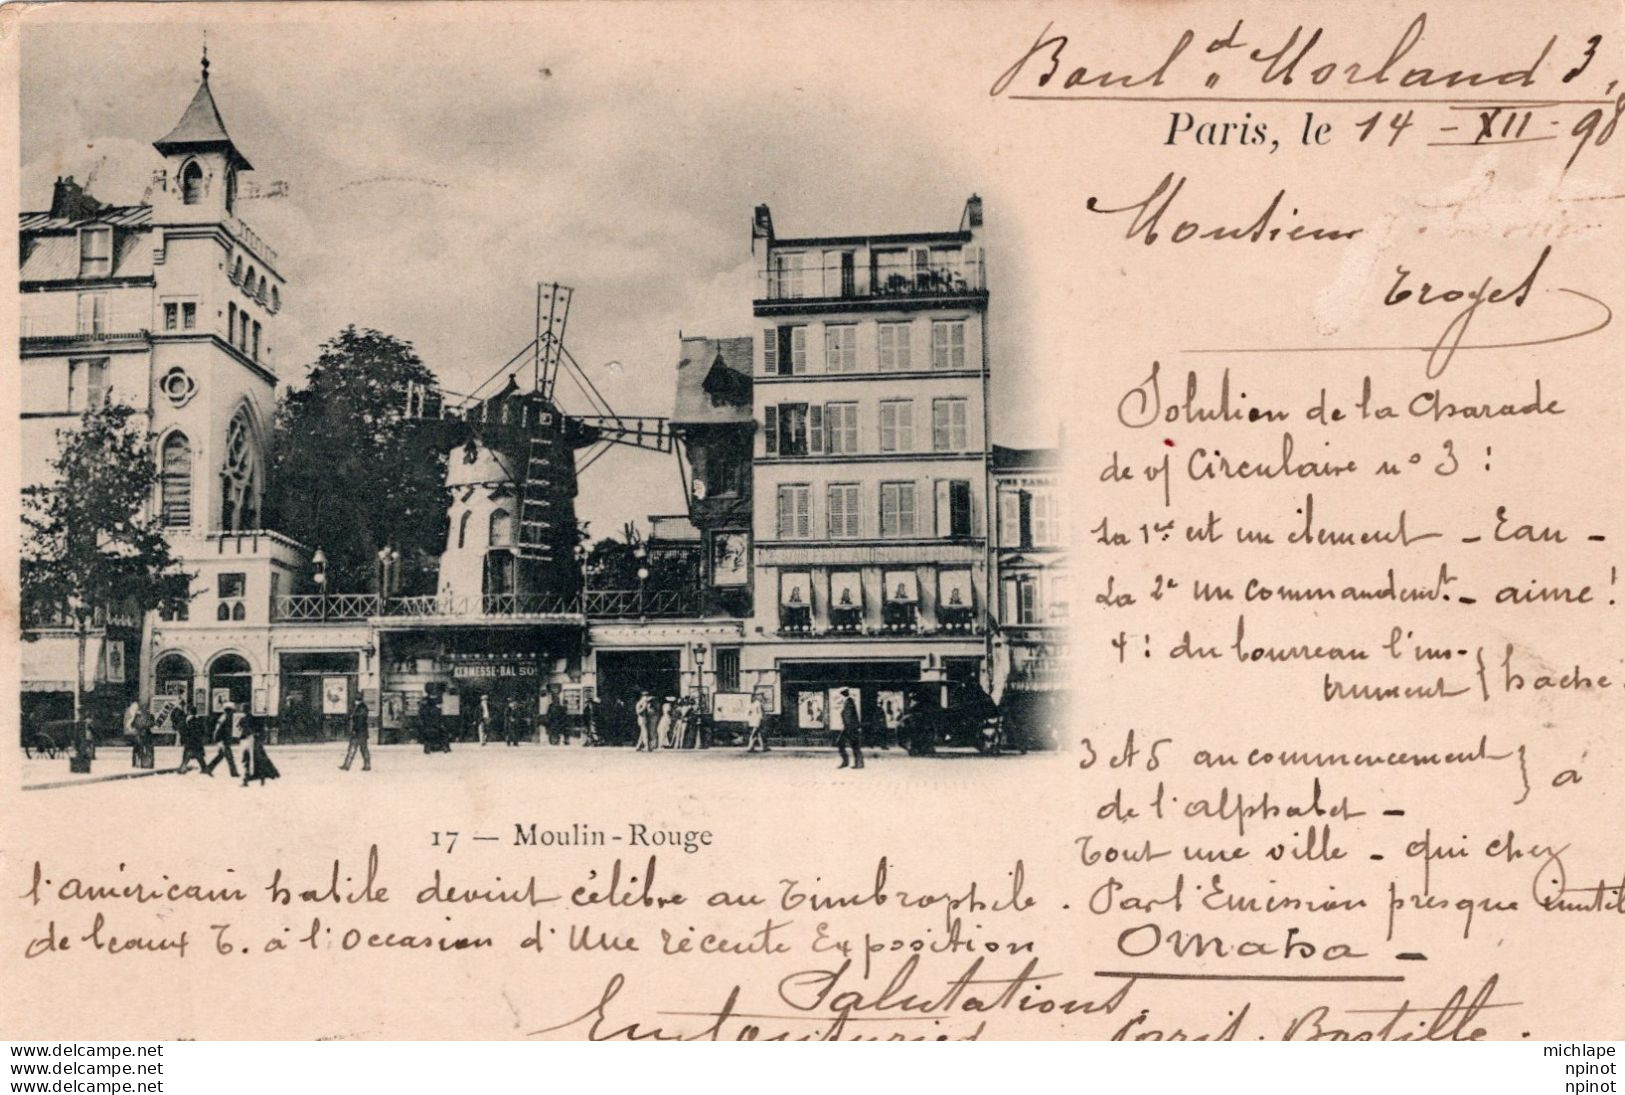 Boul.d Morland 3,
Paris, le 14 - XII - 98
Monsieur
Troyes
Solution de la charade
de v/ Circulaire n° 3 :
La 1re est un élement - Eau -
La 2e un commandent. - aime !
4 : du bourreau l'ins-
trument } hache
3 et 5 au commencement
de l'alphabet - } a
Tout une ville - qui chez
l'américain habile devint célèbre au Timbrophile. Par l'Emission presque inutile
de beaux T. à l'occasion d'Une récente Exposition
Omaha -
Salutations.
Paris. Bastille.
17 — Moulin-Rouge
KERMESSE-BAL 50c
www.delcampe.net
www.delcampe.net
www.delcampe.net
michlape
npinot
npinot